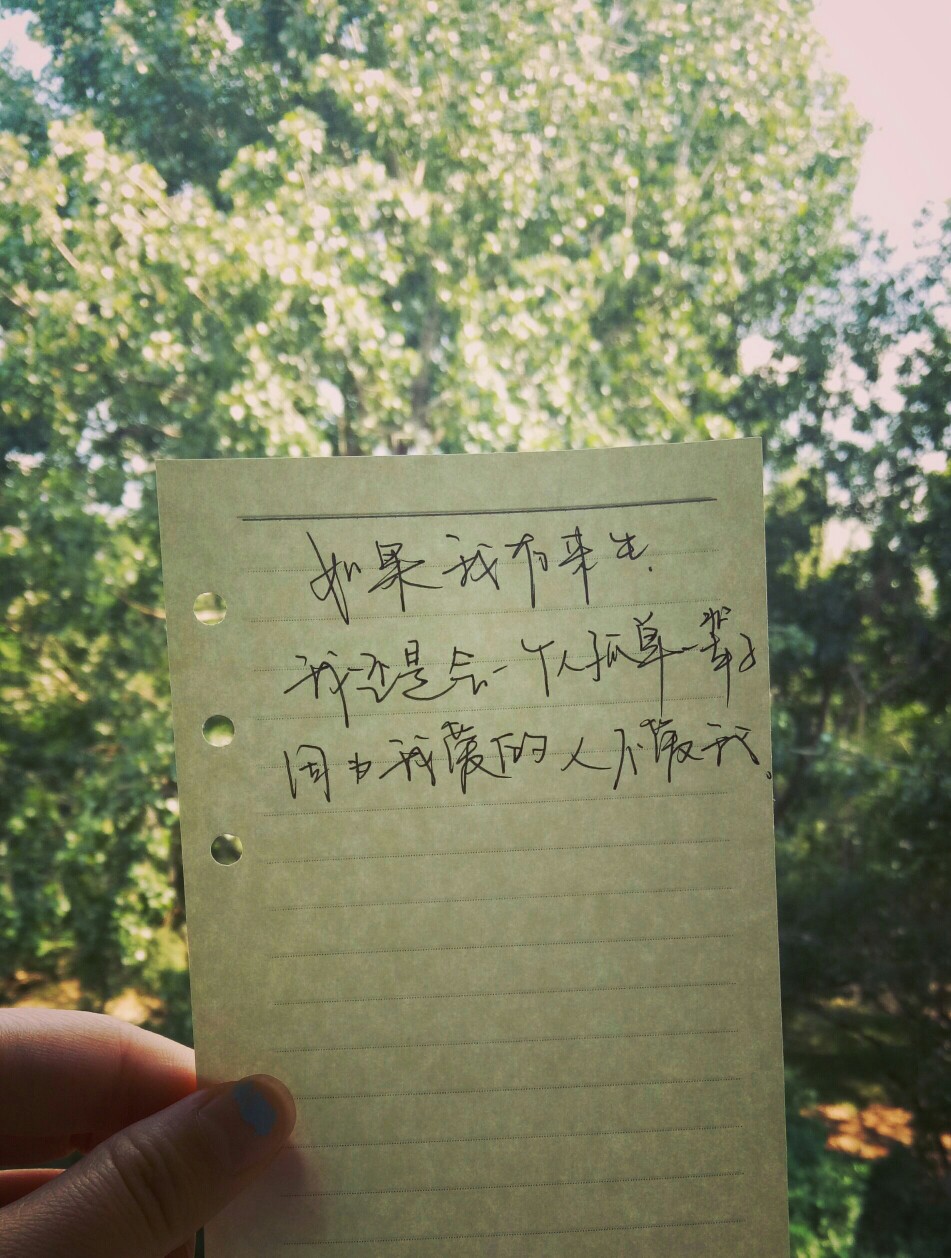 如果我有来生.
我还是会一个人孤单一辈子
因为我爱的人不爱我。